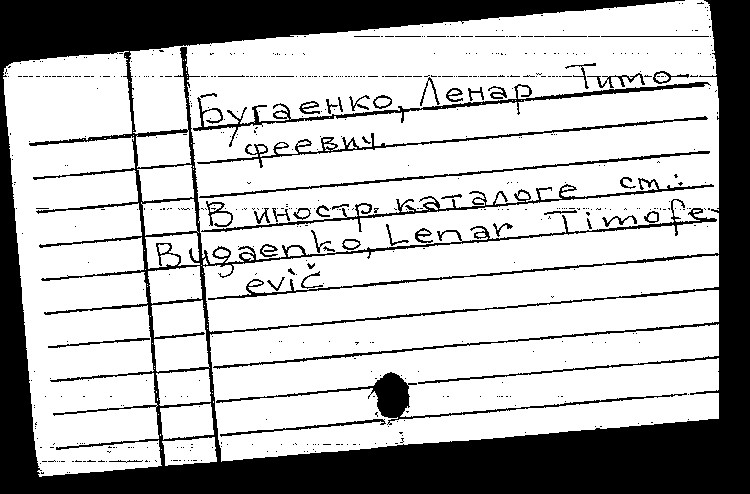 Бугаенко, Ленар Тимо-
феевич.
В иностр. каталоге см.:
Bugaenko, Lenar Timofe
evič